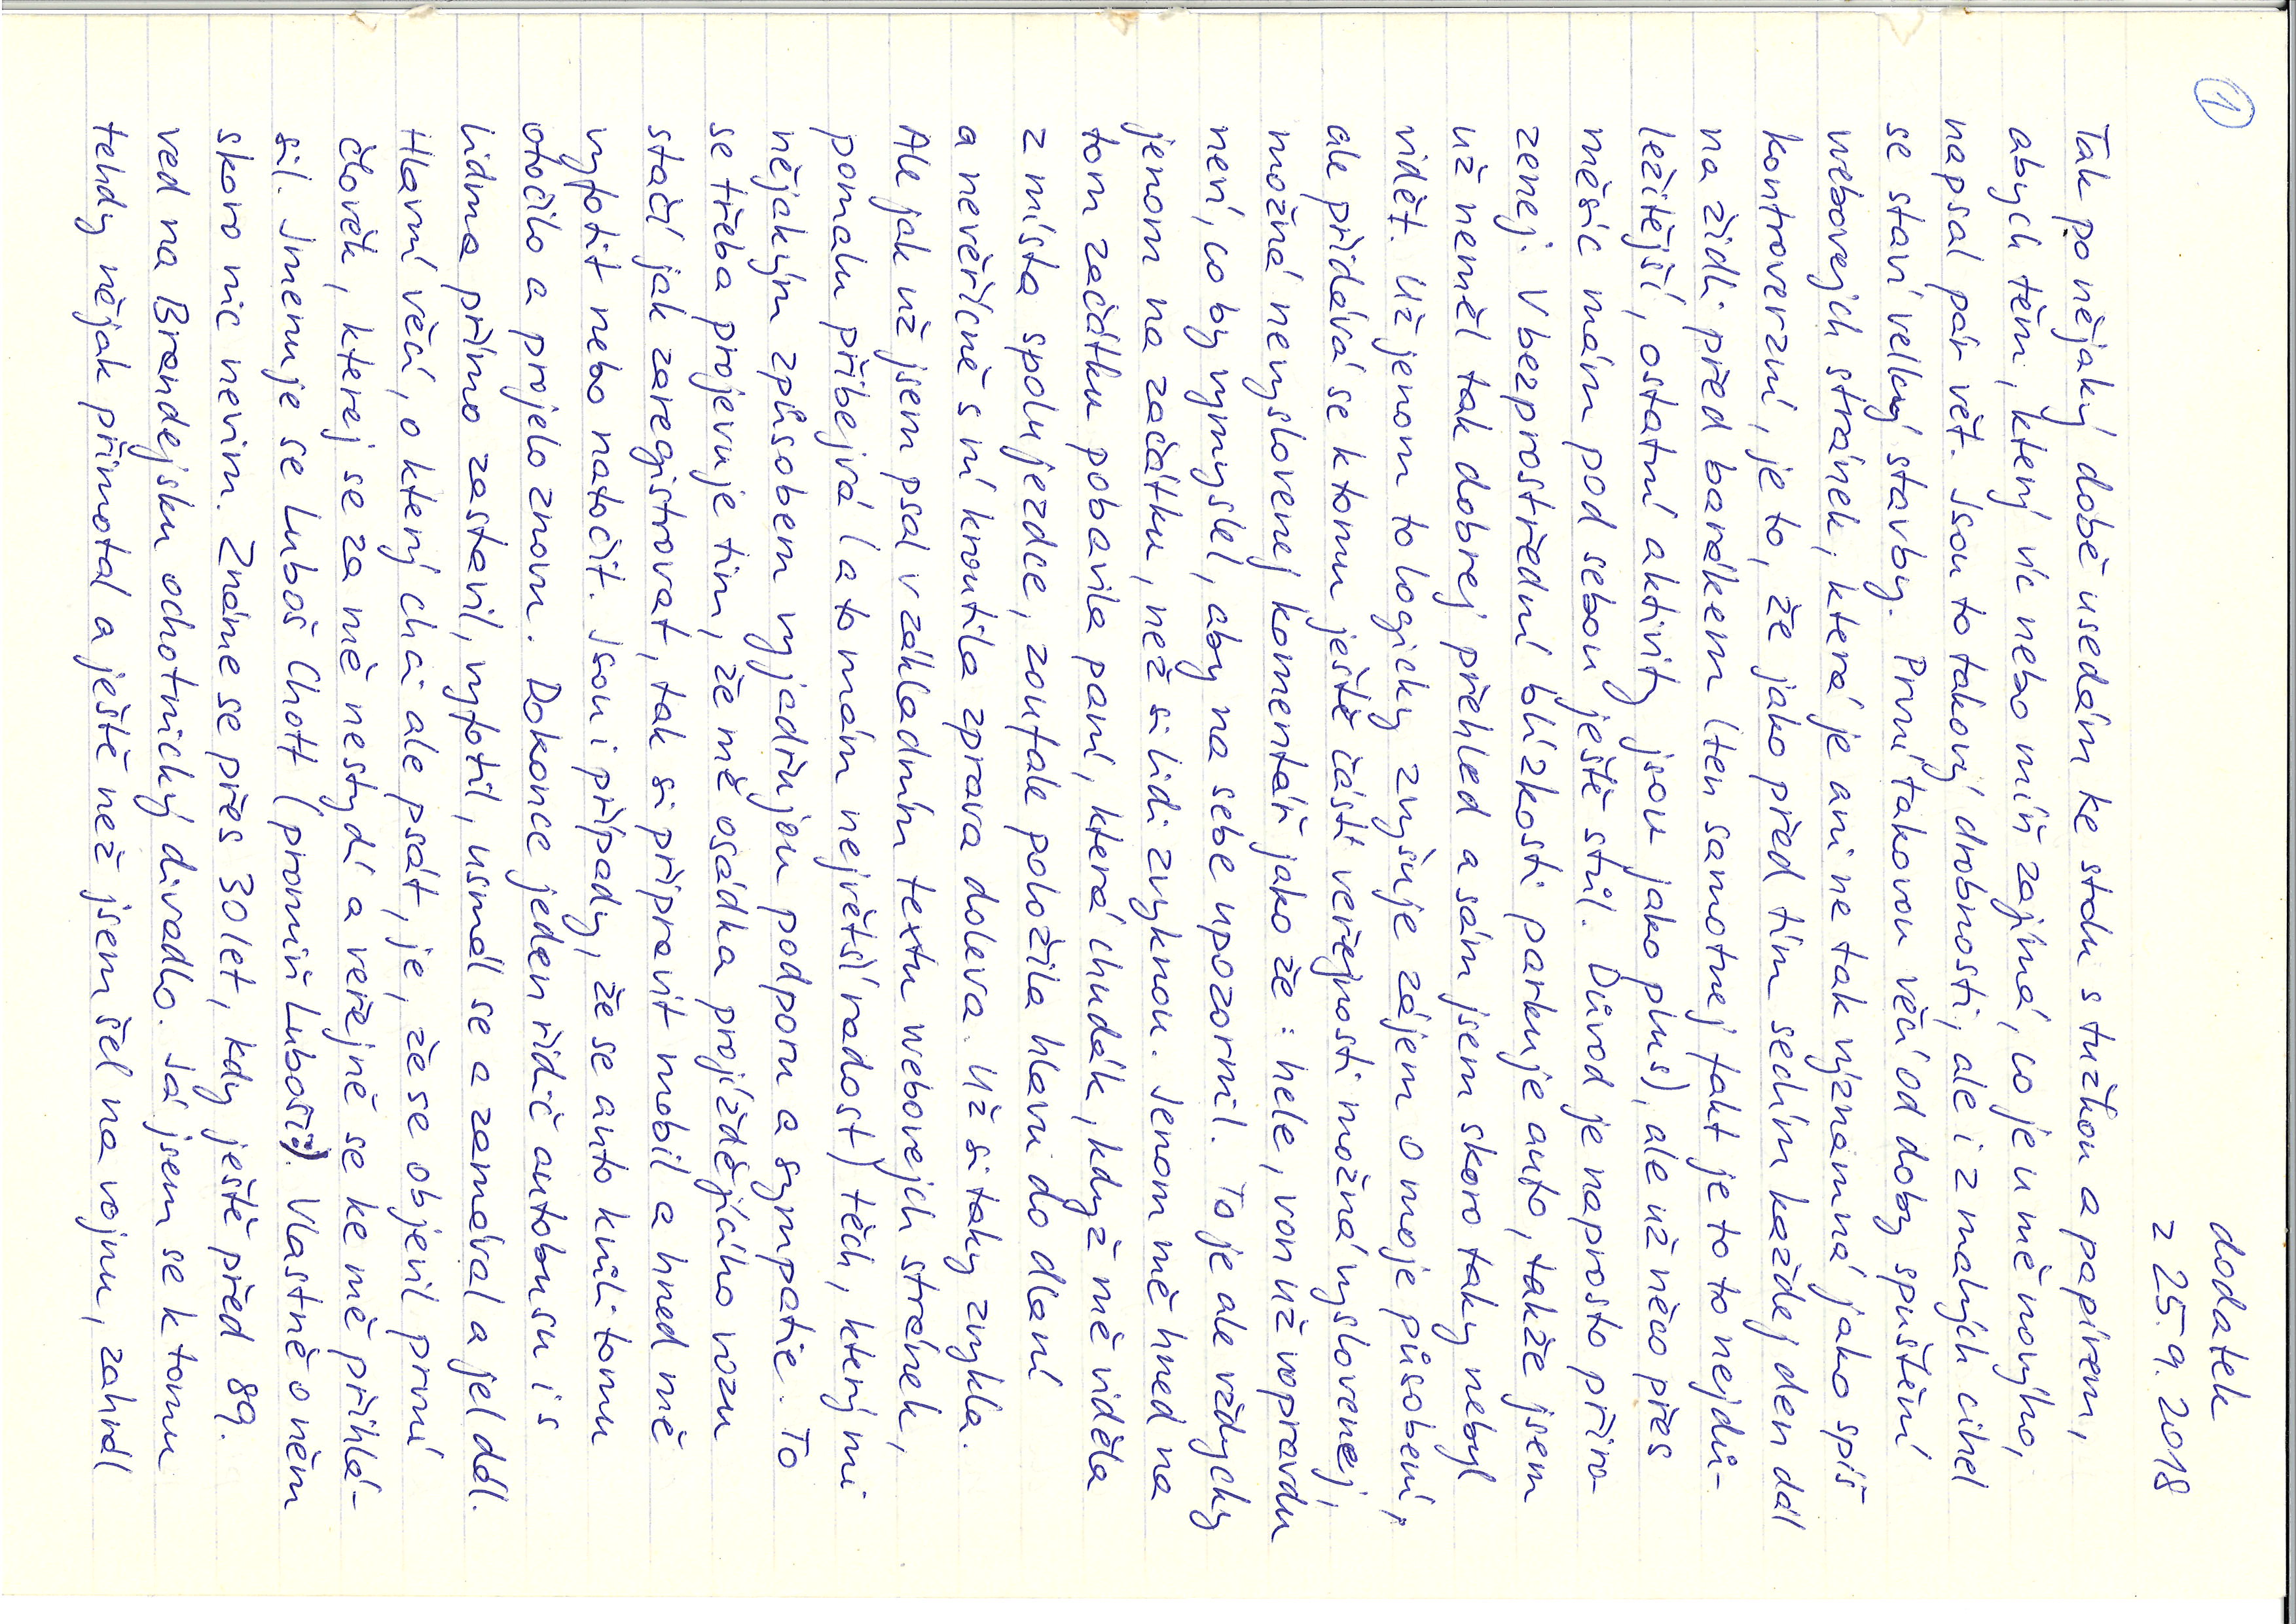 ①
dodatek
z 25.9.2018
Tak po nějaký době usedám ke stolu s tužkou a papírem,
abych těm, který víc nebo míň zajímá, co je u mě novýho,
napsal pár vět. Jsou to takový drobnosti, ale i z malých cihel
se staví velký stavby. První takovou věcí od doby spuštění
webovejch stránek, která je ani ne tak významná jako spíš
kontroverzní, je to, že jako před tím sedím každej den dál
na židli před barákem (ten samotnej fakt je to to nejdů-
ležitější, ostatní aktivity jsou jako plus), ale už něco přes
měsíc mám pod sebou ještě stůl. Důvod je naprosto přiro-
zenej. V bezprostřední blízkosti parkuje auto, takže jsem
už neměl tak dobrej přehled a sám jsem skoro taky nebyl
vidět. Už jenom to logicky zvyšuje zájem o moje působení,
ale přidává se k tomu ještě části veřejnosti možná vyslovenej,
možná nevyslovenej komentář jako že: hele, von už vopravdu
neví, co by vymyslel, aby na sebe upozornil. To je ale vždycky
jenom na začátku, než si lidi zvyknou. Jenom mě hned na
tom začátku pobavila paní, která chudák, když mě viděla
z místa spolujezdce, zoufale položila hlavu do dlaní
a nevěřícně s ní kroutila zprava doleva. Už si taky zvykla.
Ale jak už jsem psal v základním textu webovejch stránek,
pomalu přibejvá (a to mám největší radost) těch, který mi
nějakým způsobem vyjadřujou podporu a sympatie. To
se třeba projevuje tím, že mě osádka projíždějícího vozu
stačí jak zaregistrovat, tak si připravit mobil a hned mě
vyfotit nebo natočit. Jsou i případy, že se auto kvůli tomu
otočilo a projelo znovu. Dokonce jeden řidič autobusu i s
lidma přímo zastavil, vyfotil, usmál se a zamával a jel dál.
Hlavní věcí, o který chci ale psát, je, že se objevil první
člověk, kterej se za mě nestydí a veřejně se ke mě přihlá-
sil. Jmenuje se Luboš Chott (promiň Luboši). Vlastně o něm
skoro nic nevim. Známe se přes 30 let, kdy ještě před 89.
ved na Brandejsku ochotnický divadlo. Já jsem se k tomu
tehdy nějak přimotal a ještě než jsem šel na vojnu, zahrál